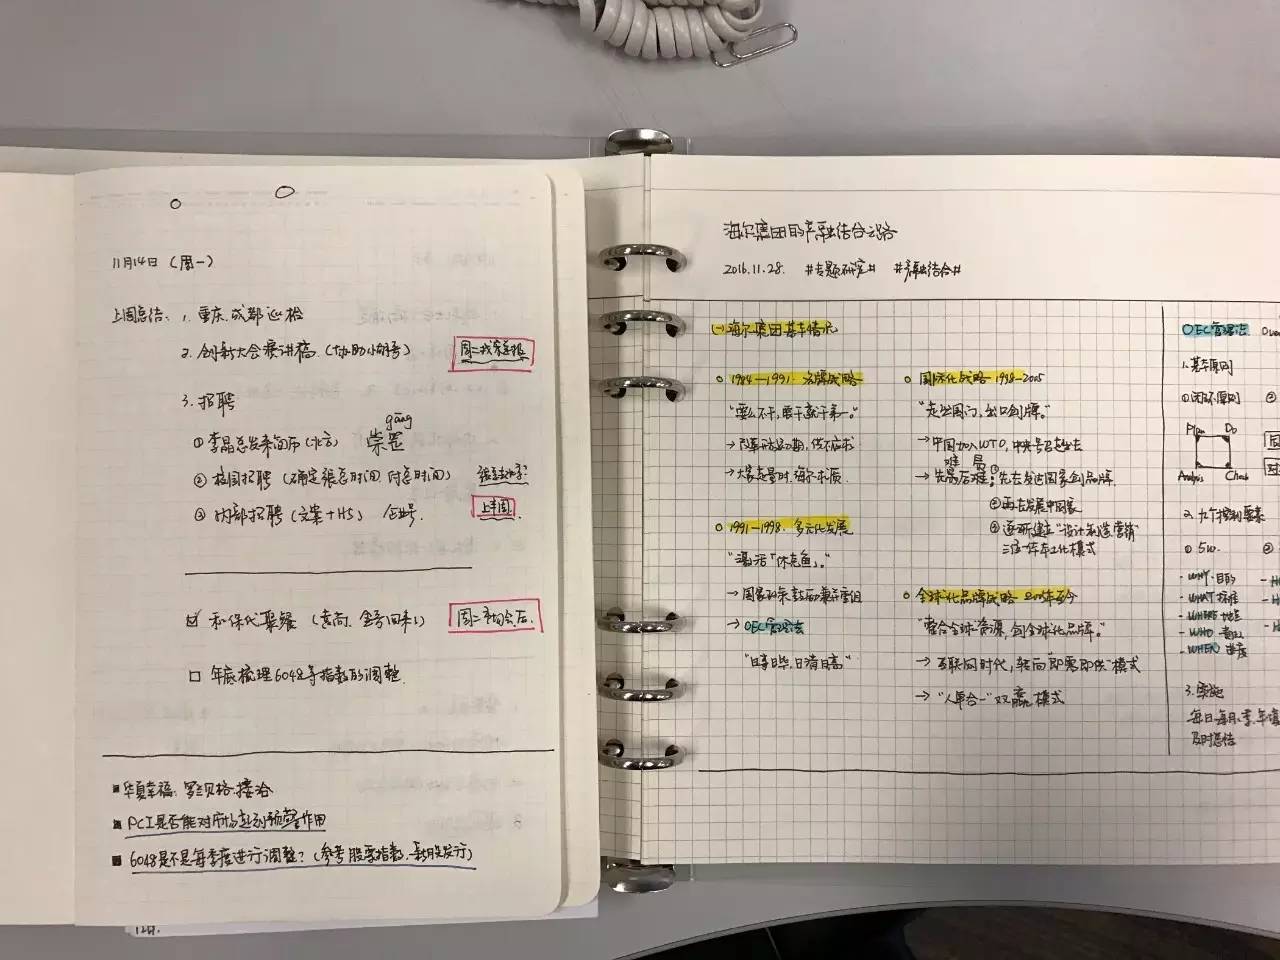 11月14日（周一）
上周总结：1. 重庆.成都巡检
2. 创新大会赛讲稿（协助小胡哥）
3. 招聘
gāng
①李晶总发来简历（北方）
②校园招聘（确定张总时间，付总时间）
③内部招聘（文案+H5） 企业号.
上半周
和保代聚餐
年底梳理6048等指数的调整.
华夏幸福：罗兰贝格接洽
PCI是否能对市场起到预警作用
6048是不是每季度进行调整？（参考股票指数，新股发行）
12月.
海尔集团的产融结合之路
2016.11.28. #专题研究# #产融结合#
(一)海尔集团基本情况
1984—1991：名牌战略
"要么不干，要干就干第一。"
→改革开放初期，供不应求
→大家走量时，海尔求质.
1991—1998：多元化发展
"激活「休克鱼」。"
→国家政策鼓励兼并重组
→OEC管理法
"日事日毕，日清日高"
国际化战略 1998—2005
"走出国门，出口创牌。"
→中国加入WTO，中央号召走出去
难 易
→先易后难：①先在发达国家创品牌
②再去发展中国家
③逐渐建立"设计制造营销"
三位一体本土化模式
全球化品牌战略 2005年至今
"整合全球资源，创全球化品牌。"
→互联网时代，转向"即需即供"模式
→"人单合一"双赢模式
OEC管理法
1.基本原则
①闭环原则 ②
Plan Do
Analysis Check
2. 九个控制要素
① 5W. ②
- WHY.目的
- WHAT 标准
- WHERE 地点
- WHO
- WHEN 进度
3. 实施
每日、每月、季、年
及时总结